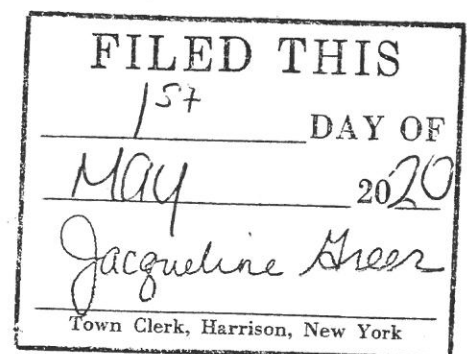 FILED THIS
1st
DAY OF
May
2020
Jacqueline Greer
Town Clerk, Harrison, New York